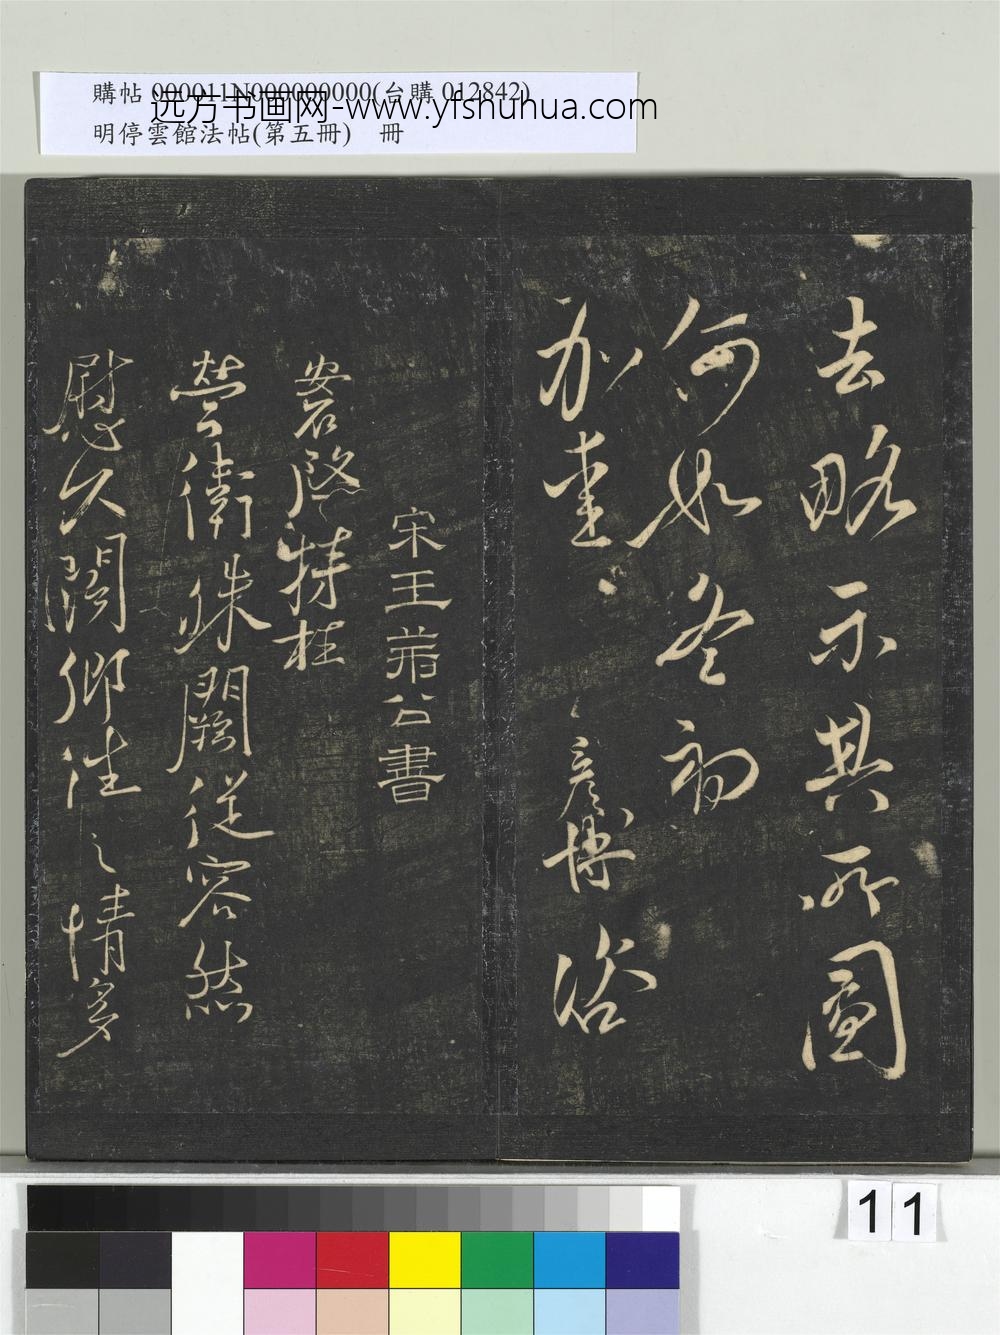 購帖 000011N000000000(台購 012842)
远方书画网-www.yfshuhua.com
明停雲館法帖(第五冊) 冊
去略示其所圖
何如冬初
加愛、彦博咨
宋王荊公書
安石啓特枉
營衛殊闕從容然
慰久闊鄉往之情多
11